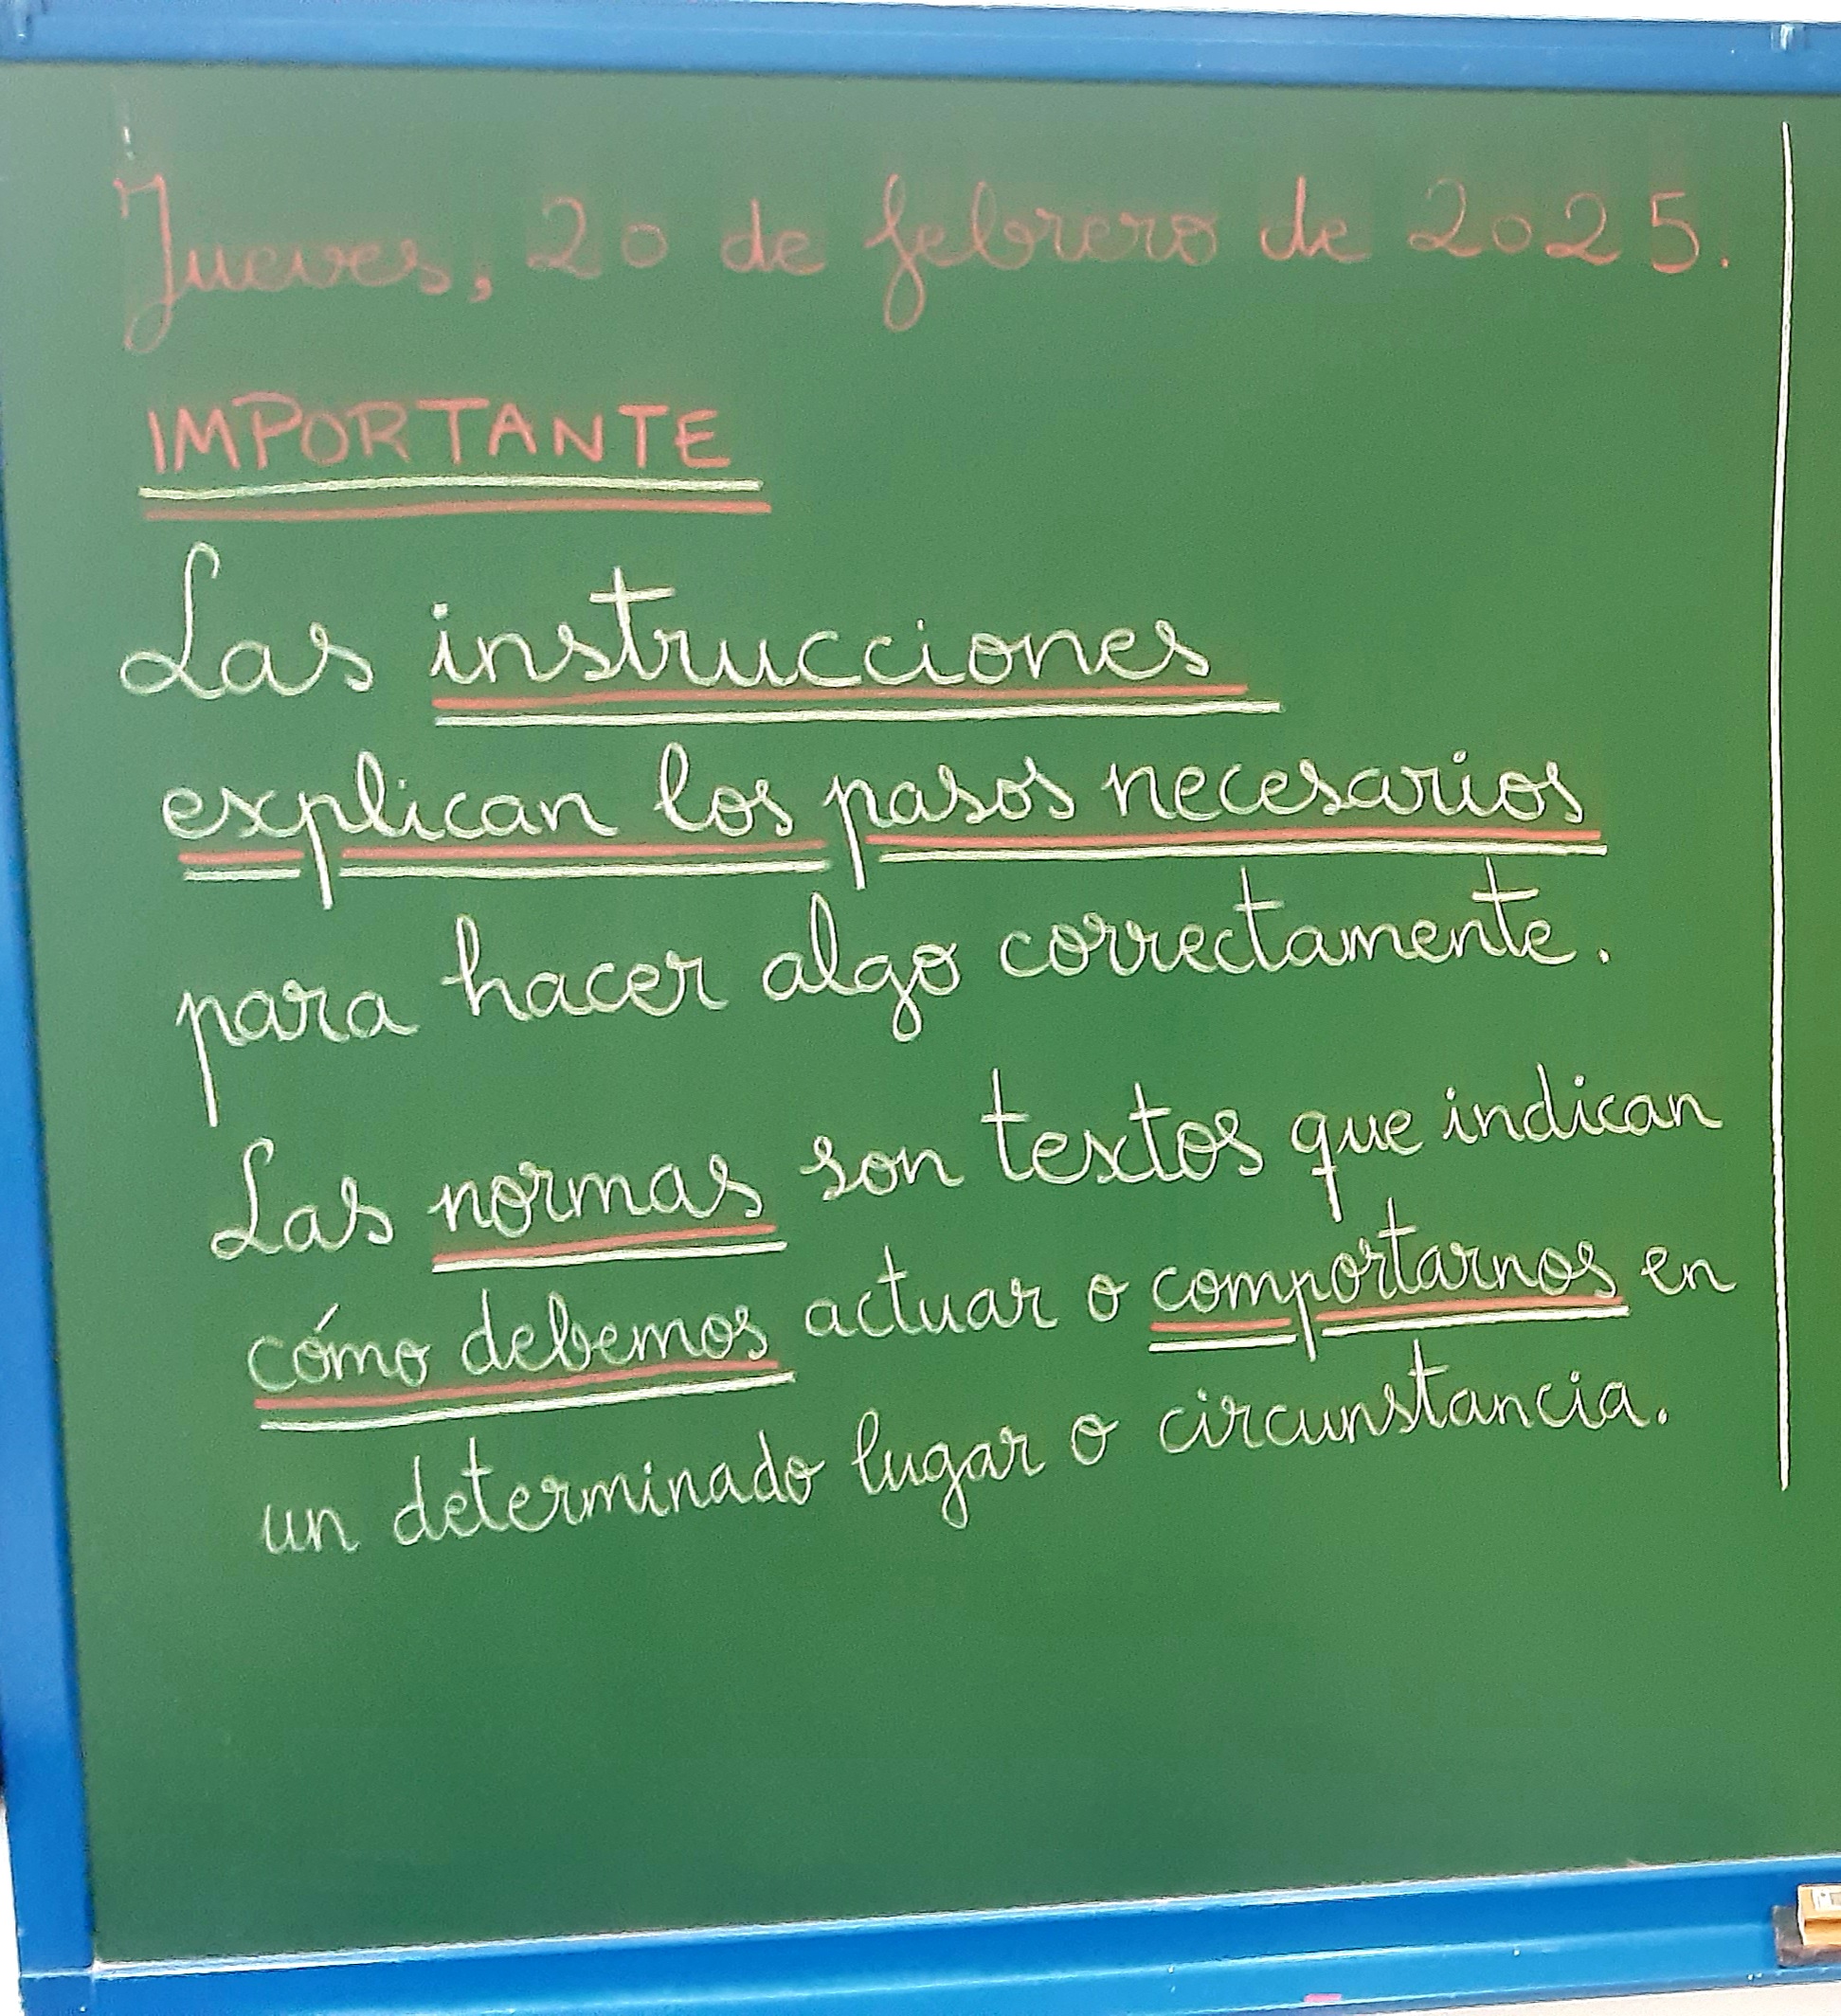 Jueves, 20 de febrero de 2025.
IMPORTANTE
Las instrucciones
explican los pasos necesarios
para hacer algo correctamente.
Las normas son textos que indican
cómo debemos actuar o comportarnos en
un determinado lugar o circunstancia.